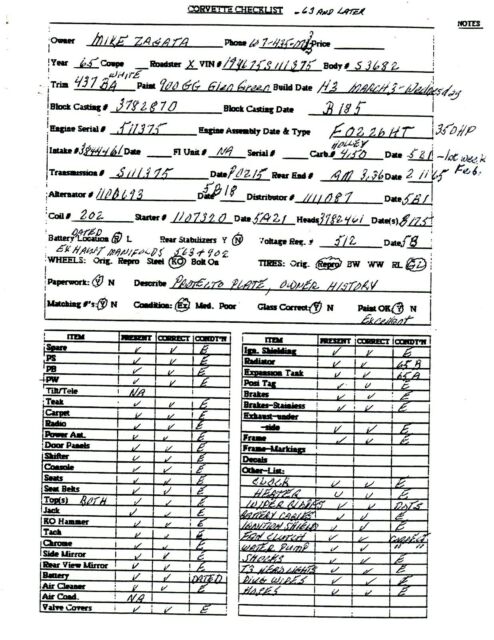 CORVETTE CHECKLIST - 63 AND LATER
NOTES
Owner MIKE ZAGATA Phone Price
Year 65 Coupe Roadster X VIN # 194675S111375 Body # S3682
Trim 437 BA WHITE Paint 900 GG Glen Green Build Date H3 MARCH 3-Wednesday
Block Casting # 3782870 Block Casting Date B185
Engine Serial # 5111375 Engine Assembly Date & Type F0226HT 350HP
Intake # 3844461 Date FI Unit # NA Serial # Carb. HOLLEY 4150 Date 521 - 1st week Feb.
Transmission # S111375 Date P0215 Rear End # AM 3.36 Date 2 11 65
Alternator # 1100693 Date 5B18 Distributor # 1111087 Date 5B1
Coil # 202 Starter # 1107320 Date 5A21 Heads 3782461 Date(s) B175
Battery DATED Location R L Rear Stabilizers Y N Voltage Reg. # 512 Date 5B
EXHAUST MANIFOLDS 563 + 902
WHEELS: Orig. Repro Steel KO Bolt On TIRES: Orig. Repro BW WW RL GL
Paperwork: Y N Describe PROTECTO PLATE, OWNER HISTORY
Matching #'s: Y N Condition: Ex Med. Poor Glass Correct: Y N Paint OK Y N
Excellent
ITEM PRESENT CORRECT CONDT'N
Spare ✓ ✓ E
PS ✓ ✓ E
PB ✓ ✓ E
PW ✓ ✓ E
Tilt/Tele NA
Teak ✓ ✓ E
Carpet ✓ ✓ E
Radio ✓ ✓ E
Power Ant. ✓ ✓ E
Door Panels ✓ ✓ E
Shifter ✓ ✓ E
Console ✓ ✓ E
Seats ✓ ✓ E
Seat Belts ✓ ✓ E
Top(s) BOTH ✓ ✓ E
Jack ✓ ✓ E
KO Hammer ✓ ✓ E
Tach ✓ ✓ E
Chrome ✓ ✓ E
Side Mirror ✓ ✓ E
Rear View Mirror ✓ ✓ E
Battery ✓ ✓ DATED
Air Cleaner ✓ ✓ E
Air Cond. NA
Valve Covers ✓ ✓ E
ITEM PRESENT CORRECT CONDT'N
Ign. Shielding ✓ ✓ E
Radiator ✓ ✓ 65 A
Expansion Tank ✓ ✓ 65A
Posi Tag ✓ ✓ E
Brakes ✓ ✓ E
Brakes-Stainless ✓ ✓ E
Exhaust-under
-side ✓ ✓ E
Frame ✓ ✓ E
Frame-Markings
Decals
Other-List:
CLOCK ✓ ✓ E
HEATER ✓ ✓ E
WIPER BLADES ✓ ✓ DOTS
BATTERY CABLES ✓ ✓ E
IGNITION SHIELD ✓ ✓ E
FAN CLUTCH ✓ ✓ CORRECT
WATER PUMP ✓ ✓ " "
SHOCKS ✓ ✓ E
T3 HEADLIGHTS ✓ ✓ E
✓ ✓ E
HOSES ✓ ✓ E